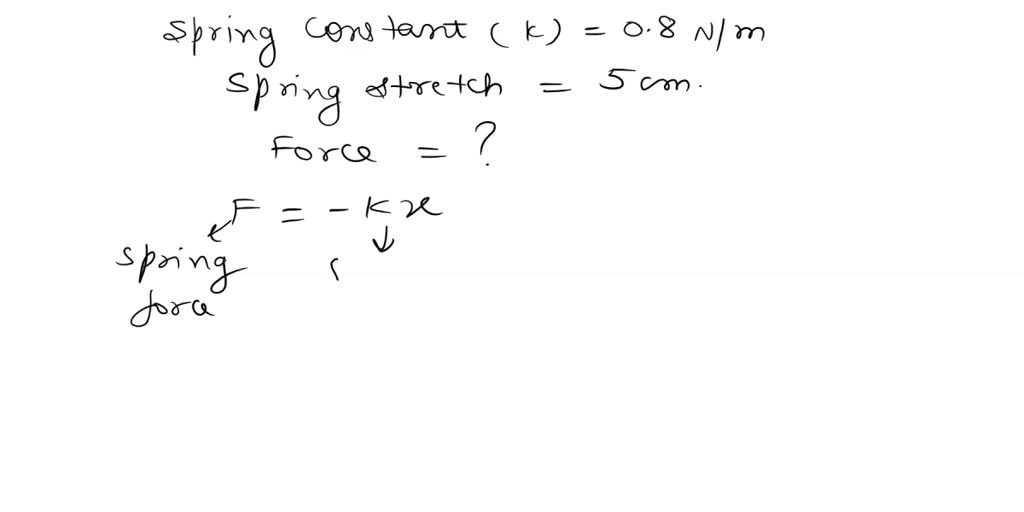 Spring Constant (K) = 0.8 N/m
Spring stretch = 5 cm.
Force = ?
F = - K x
Spring (
force